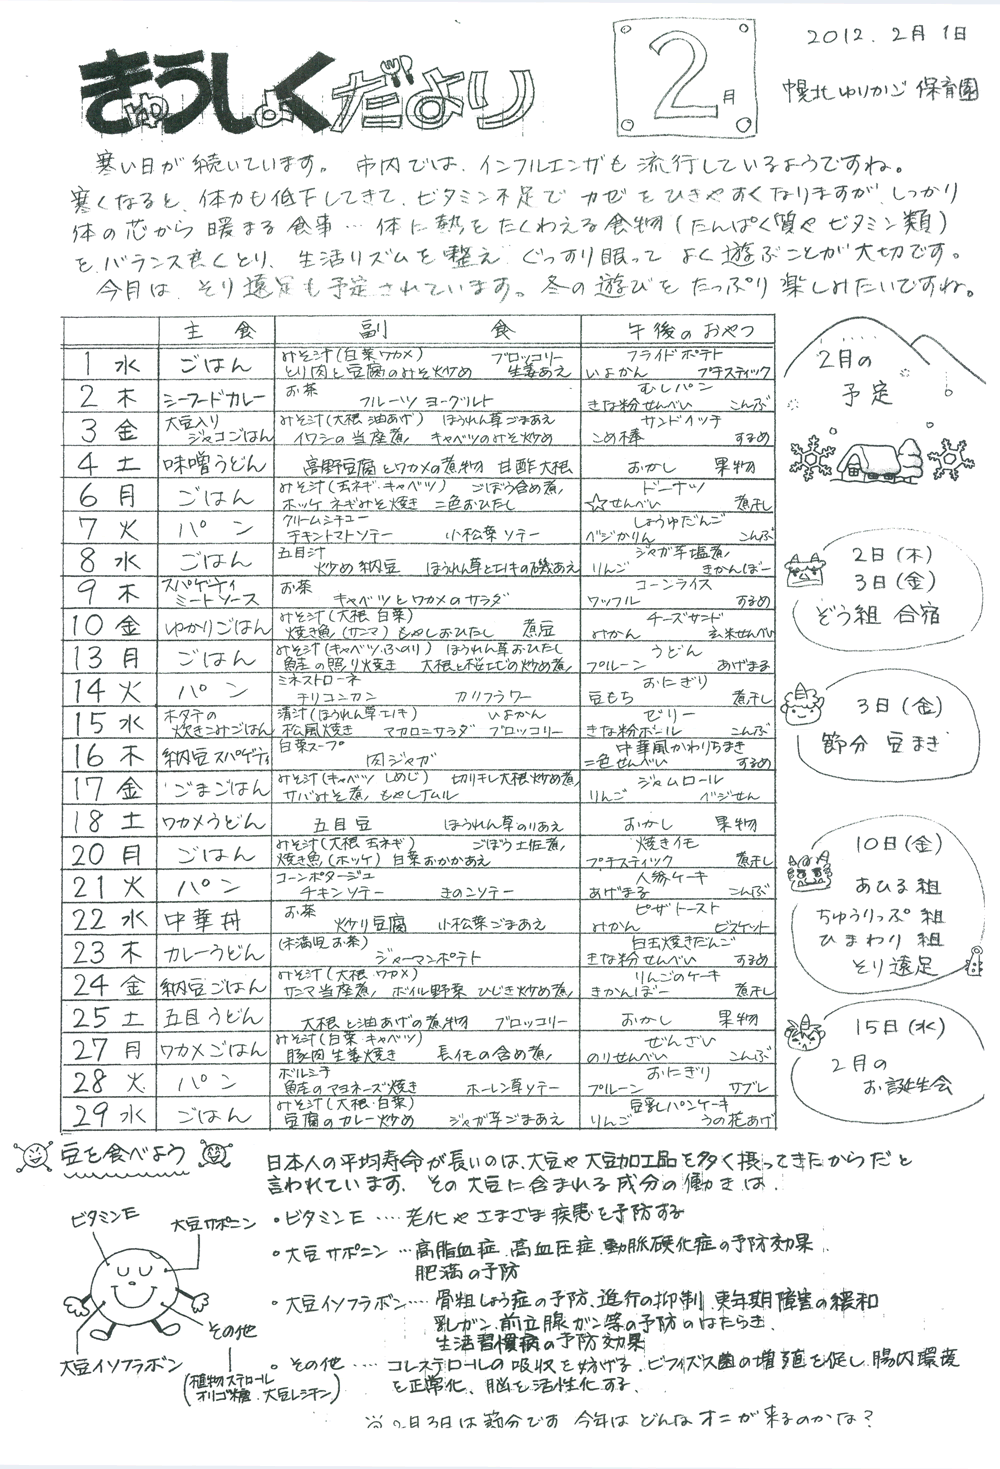 きゅうしょくだより
2月
2012.2月1日
幌北ゆりかご保育園
寒い日が続いています。市内では、インフルエンザも流行しているようですね。
寒くなると、体力も低下してきて、ビタミン不足でカゼをひきやすくなりますが、しっかり
体の芯から暖まる食事…体に熱をたくわえる食物(たんぱく質やビタミン類)
を、バランス良くとり、生活リズムを整え、ぐっすり眠ってよく遊ぶことが大切です。
今月は、そり遠足も予定されています。冬の遊びをたっぷり楽しみたいですね。
主食 副食 午後のおやつ
1 水 ごはん みそ汁(白菜ワカメ) ブロッコリー フライドポテト
とり肉と豆腐のみそ炒め 生姜あえ いよかん プチスティック
2 木 シーフードカレー お茶 フルーツヨーグルト むしパン
きな粉せんべい こんぶ
3 金 大豆入りジャコごはん みそ汁(大根 油あげ) ほうれん草ごまあえ サンドイッチ
イワシの当座煮 キャベツのみそ炒め こめ棒 するめ
4 土 味噌うどん 高野豆腐とワカメの煮物 甘酢大根 おかし 果物
6 月 ごはん みそ汁(玉ネギ・キャベツ) ごぼう含め煮 ドーナツ
ホッケネギみそ焼き 二色おひたし ☆せんべい 煮干し
7 火 パン クリームシチュー しょうゆだんご
チキントマトソテー 小松菜ソテー ベジかりん こんぶ
8 水 ごはん 五目汁 ジャガ芋塩煮
炒め納豆 ほうれん草とエノキの磯あえ りんご きかんぼー
9 木 スパゲティミートソース お茶 コーンライス
キャベツとワカメのサラダ ワッフル するめ
10 金 ゆかりごはん みそ汁(大根 白菜) チーズサンド
焼き魚(サンマ) もやしおひたし 煮豆 みかん 玄米せんべい
13 月 ごはん みそ汁(キャベツ・ふのり) ほうれん草おひたし うどん
鮭の照り焼き 大根と桜エビの炒め煮 プルーン あげまる
14 火 パン ミネストローネ おにぎり
チリコンカン カリフラワー 豆もち 煮干し
15 水 ホタテの炊きこみごはん 清汁(ほうれん草エノキ) いよかん ゼリー
松風焼き マカロニサラダ ブロッコリー きな粉ボール こんぶ
16 木 納豆スパゲティ 白菜スープ 中華風かわりちまき
肉ジャガ 二色せんべい するめ
17 金 ごまごはん みそ汁(キャベツ しめじ) 切り干し大根炒め煮 ジャムロール
サバみそ煮 もやしナムル りんご ベジせん
18 土 ワカメうどん 五目豆 ほうれん草のりあえ おかし 果物
20 月 ごはん みそ汁(大根 玉ネギ) ごぼう土佐煮 焼きイモ
焼き魚(ホッケ) 白菜おかかあえ プチスティック 煮干し
21 火 パン コーンポタージュ 人参ケーキ
チキンソテー きのこソテー あげまる こんぶ
22 水 中華丼 お茶 ピザトースト
炒り豆腐 小松菜ごまあえ みかん ビスケット
23 木 カレーうどん (未満児お茶) 白玉焼きだんご
ジャーマンポテト きな粉せんべい するめ
24 金 納豆ごはん みそ汁(大根 ワカメ) りんごのケーキ
サンマ当座煮 ボイル野菜 ひじき炒め煮 きかんぼー 煮干し
25 土 五目うどん 大根と油あげの煮物 ブロッコリー おかし 果物
27 月 ワカメごはん みそ汁(白菜 キャベツ) ぜんざい
豚肉生姜焼き 長イモの含め煮 のりせんべい こんぶ
28 火 パン ボルシチ おにぎり
鮭のマヨネーズ焼き ホーレン草ソテー プルーン サブレ
29 水 ごはん みそ汁(大根・白菜) 豆乳パンケーキ
豆腐のカレー炒め ジャガ芋ごまあえ りんご うの花あげ
2月の
予定
2日(木)
3日(金)
ぞう組 合宿
3日(金)
節分 豆まき
10日(金)
あひる組
ちゅうりっぷ組
ひまわり組
そり遠足
15日(水)
2月の
お誕生会
豆を食べよう
日本人の平均寿命が長いのは、大豆や大豆加工品を多く摂ってきたからだと
言われています。その大豆に含まれる成分の働きは、
ビタミンE
大豆サポニン
その他
大豆イソフラボン
(植物ステロール
オリゴ糖・大豆レシチン)
・ビタミンE…老化やさまざま疾患を予防する
・大豆サポニン…高脂血症、高血圧症、動脈硬化症の予防効果
肥満の予防
・大豆イソフラボン…骨粗しょう症の予防、進行の抑制、更年期障害の緩和
乳ガン、前立腺ガン等の予防のはたらき
生活習慣病の予防効果
・その他…コレステロールの吸収を妨げる、ビフィズス菌の増殖を促し、腸内環境
を正常化、脳を活性化する。
※2月3日は節分です 今年はどんなオニが来るのかな?